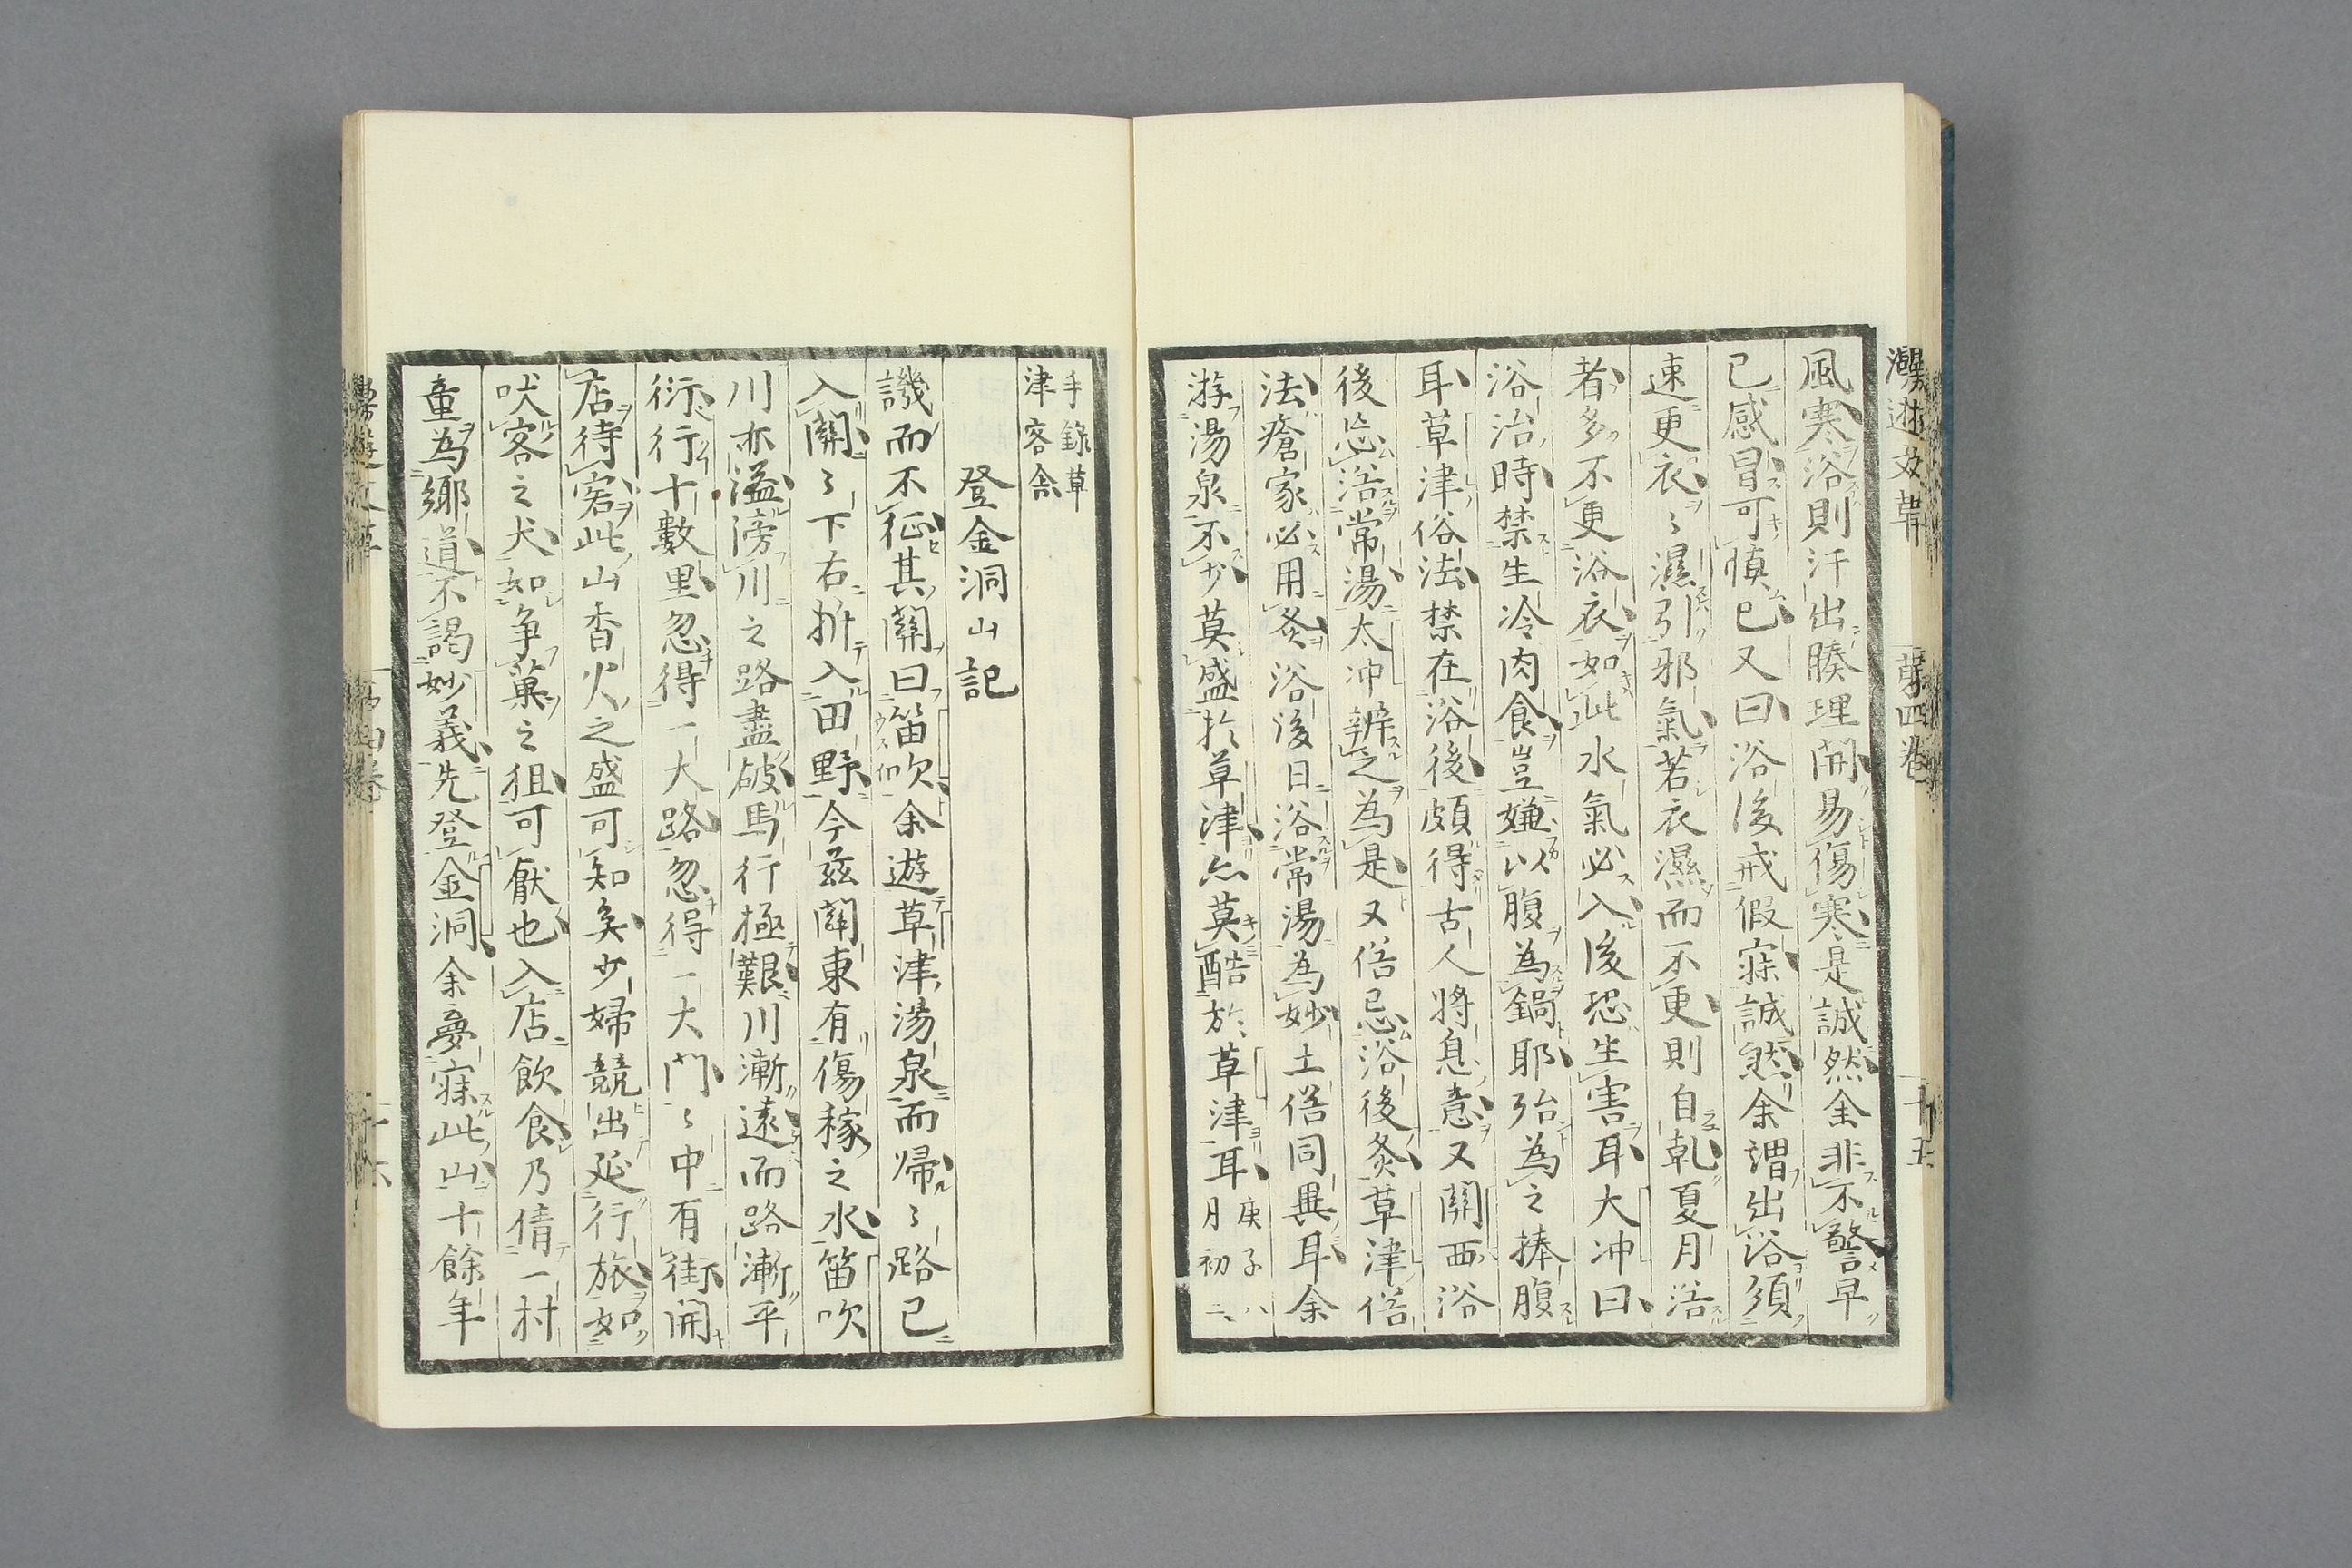 第四卷
十五
風寒浴則汗出腠理開易傷寒是誠然余非不警早
已感冒可慎已又曰浴後戒假寐誠然余謂出浴須
速更衣〻濕引邪氣若衣濕而不更則自乾夏月浴
者多不更浴衣如此水氣必入後恐生害耳大冲曰
浴治時禁生冷肉食豈嫌以腹為鍋耶殆為之捧腹
耳草津俗法禁在浴後頗得古人將息意又關西浴
後忌浴常湯太冲辨之為是又俗忌浴後灸草津俗
法瘡家必用灸浴後日浴常湯為妙土俗同異耳余
游湯泉不少莫盛於草津亦莫酷於草津耳庚子八
月初二
手錄草
津客舍
登金洞山記
譏而不征其關曰笛吹余遊草津湯泉而帰〻路已
入關〻下右折入田野今茲關東有傷稼之水笛吹
川亦溢傍川之路盡破馬行極艱川漸遠而路漸平
衍行十數里忽得一大路忽得一大門〻中有街開
店待客此山香火之盛可知矣少婦競出延行旅如
吠客之犬如爭菓之狙可厭也入店飲食乃倩一村
童為鄉道不謁妙義先登金洞余夢寐此山十餘年